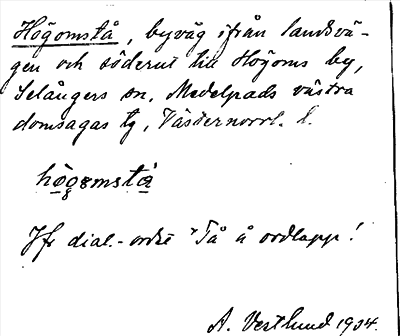 Högomstå, byväg ifrån landsvä-
gen och söderut till Högoms by,
Selångers sn, Medelpads västra
domsagas tg, Västernorrl. l.
högomstå
Jfr dial.-ordet Tå å ordlapp!
A. Vestlund 1934.